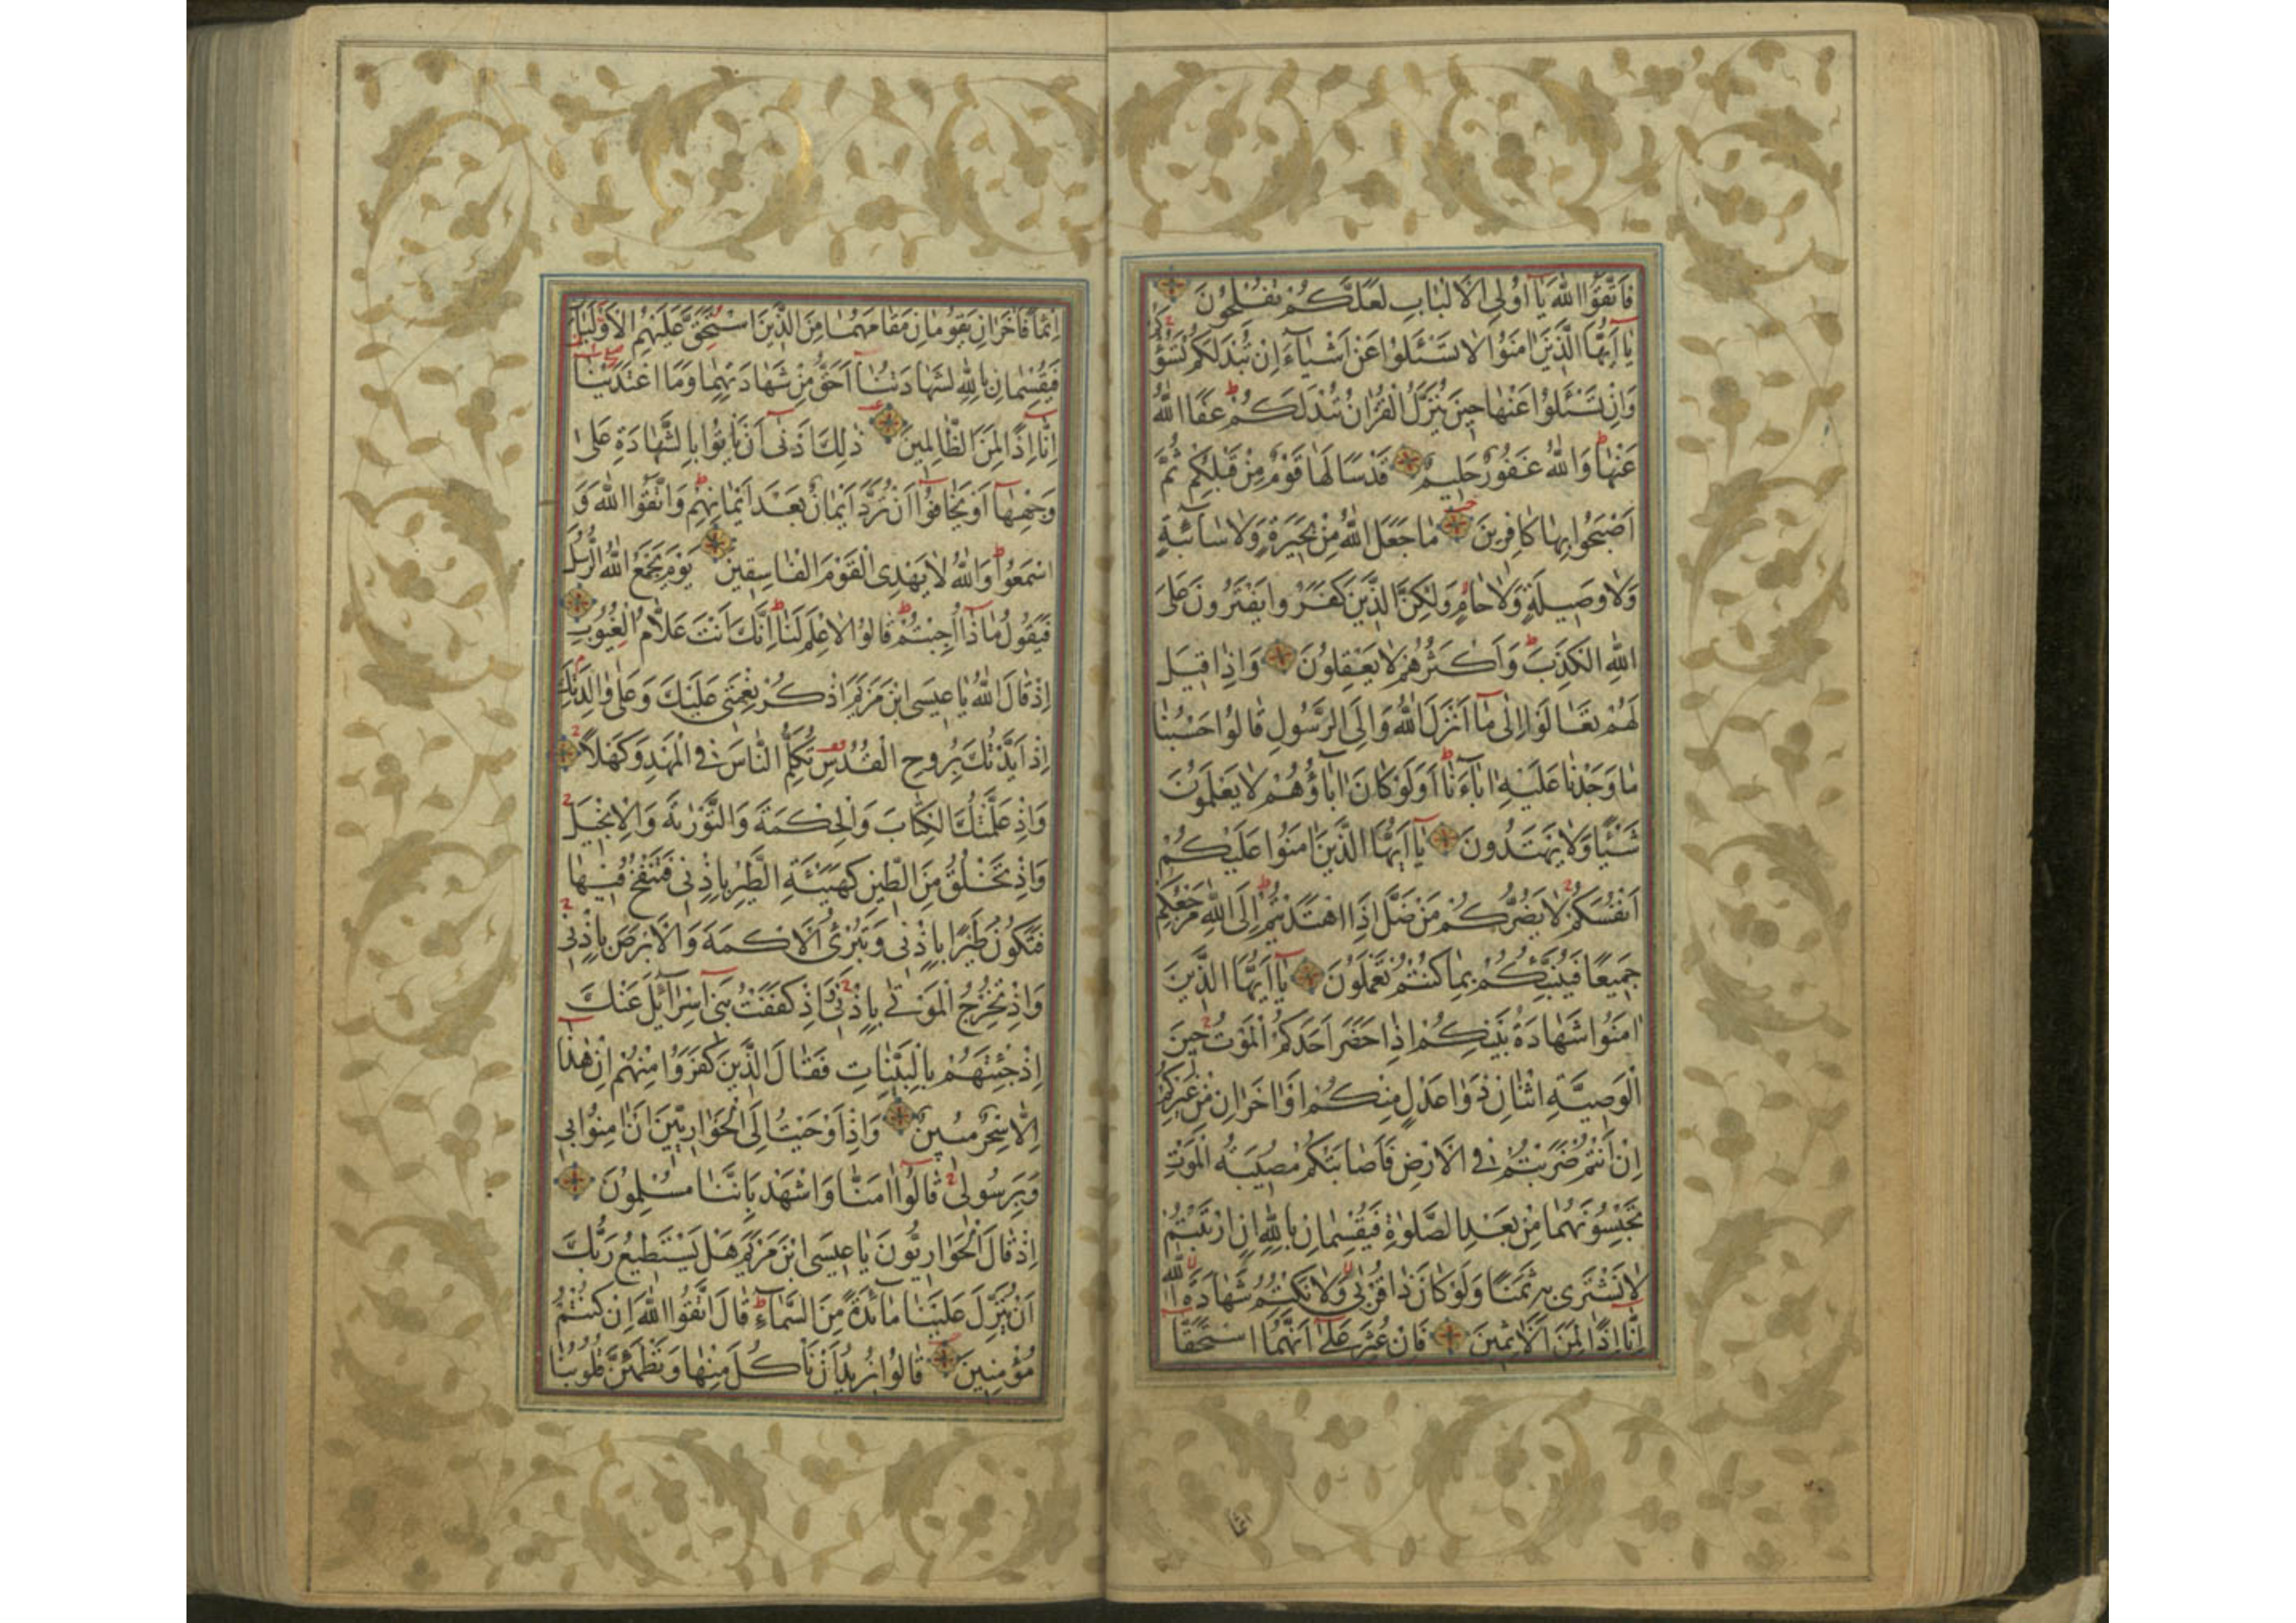 فَاتَّقُوا اللّٰهَ يَا اُولِى الْاَلْبَابِ لَعَلَّكُمْ تُفْلِحُونَ
يَا اَيُّهَا الَّذِينَ اٰمَنُوا لَا تَسْئَلُوا عَنْ اَشْيَآءَ اِنْ تُبْدَ لَكُمْ تَسُؤْكُمْ
وَاِنْ تَسْئَلُوا عَنْهَا حِينَ يُنَزَّلُ الْقُرْاٰنُ تُبْدَ لَكُمْ عَفَا اللّٰهُ
عَنْهَا وَاللّٰهُ غَفُورٌ حَلِيمٌ قَدْ سَاَلَهَا قَوْمٌ مِنْ قَبْلِكُمْ ثُمَّ
اَصْبَحُوا بِهَا كَافِرِينَ مَا جَعَلَ اللّٰهُ مِنْ بَحِيرَةٍ وَلَا سَآئِبَةٍ
وَلَا وَصِيلَةٍ وَلَا حَامٍ وَلٰكِنَّ الَّذِينَ كَفَرُوا يَفْتَرُونَ عَلَى
اللّٰهِ الْكَذِبَ وَاَكْثَرُهُمْ لَا يَعْقِلُونَ وَاِذَا قِيلَ
لَهُمْ تَعَالَوْا اِلٰى مَا اَنْزَلَ اللّٰهُ وَاِلَى الرَّسُولِ قَالُوا حَسْبُنَا
مَا وَجَدْنَا عَلَيْهِ اٰبَآءَنَا اَوَلَوْ كَانَ اٰبَاؤُهُمْ لَا يَعْلَمُونَ
شَيْئًا وَلَا يَهْتَدُونَ يَا اَيُّهَا الَّذِينَ اٰمَنُوا عَلَيْكُمْ
اَنْفُسَكُمْ لَا يَضُرُّكُمْ مَنْ ضَلَّ اِذَا اهْتَدَيْتُمْ اِلَى اللّٰهِ مَرْجِعُكُمْ
جَمِيعًا فَيُنَبِّئُكُمْ بِمَا كُنْتُمْ تَعْمَلُونَ يَا اَيُّهَا الَّذِينَ
اٰمَنُوا شَهَادَةُ بَيْنِكُمْ اِذَا حَضَرَ اَحَدَكُمُ الْمَوْتُ حِينَ
الْوَصِيَّةِ اثْنَانِ ذَوَا عَدْلٍ مِنْكُمْ اَوْ اٰخَرَانِ مِنْ غَيْرِكُمْ
اِنْ اَنْتُمْ ضَرَبْتُمْ فِى الْاَرْضِ فَاَصَابَتْكُمْ مُصِيبَةُ الْمَوْتِ
تَحْبِسُونَهُمَا مِنْ بَعْدِ الصَّلٰوةِ فَيُقْسِمَانِ بِاللّٰهِ اِنِ ارْتَبْتُمْ
لَا نَشْتَرِى بِهِ ثَمَنًا وَلَوْ كَانَ ذَا قُرْبٰى وَلَا نَكْتُمُ شَهَادَةَ اللّٰهِ
اِنَّا اِذًا لَمِنَ الْاٰثِمِينَ فَاِنْ عُثِرَ عَلٰى اَنَّهُمَا اسْتَحَقَّا
اثما
اِثْمًا فَاٰخَرَانِ يَقُومَانِ مَقَامَهُمَا مِنَ الَّذِينَ اسْتُحِقَّ عَلَيْهِمُ الْاَوْلَيَانِ
فَيُقْسِمَانِ بِاللّٰهِ لَشَهَادَتُنَا اَحَقُّ مِنْ شَهَادَتِهِمَا وَمَا اعْتَدَيْنَا
اِنَّا اِذًا لَمِنَ الظَّالِمِينَ ذٰلِكَ اَدْنٰى اَنْ يَاْتُوا بِالشَّهَادَةِ عَلٰى
وَجْهِهَا اَوْ يَخَافُوا اَنْ تُرَدَّ اَيْمَانٌ بَعْدَ اَيْمَانِهِمْ وَاتَّقُوا اللّٰهَ وَ
اسْمَعُوا وَاللّٰهُ لَا يَهْدِى الْقَوْمَ الْفَاسِقِينَ يَوْمَ يَجْمَعُ اللّٰهُ الرُّسُلَ
فَيَقُولُ مَاذَا اُجِبْتُمْ قَالُوا لَا عِلْمَ لَنَا اِنَّكَ اَنْتَ عَلَّامُ الْغُيُوبِ
اِذْ قَالَ اللّٰهُ يَا عِيسَى ابْنَ مَرْيَمَ اذْكُرْ نِعْمَتِى عَلَيْكَ وَعَلٰى وَالِدَتِكَ
اِذْ اَيَّدْتُكَ بِرُوحِ الْقُدُسِ تُكَلِّمُ النَّاسَ فِى الْمَهْدِ وَكَهْلًا
وَاِذْ عَلَّمْتُكَ الْكِتَابَ وَالْحِكْمَةَ وَالتَّوْرٰيةَ وَالْاِنْجِيلَ
وَاِذْ تَخْلُقُ مِنَ الطِّينِ كَهَيْئَةِ الطَّيْرِ بِاِذْنِى فَتَنْفُخُ فِيهَا
فَتَكُونُ طَيْرًا بِاِذْنِى وَتُبْرِئُ الْاَكْمَهَ وَالْاَبْرَصَ بِاِذْنِى
وَاِذْ تُخْرِجُ الْمَوْتٰى بِاِذْنِى وَاِذْ كَفَفْتُ بَنِى اِسْرَآئِلَ عَنْكَ
اِذْ جِئْتَهُمْ بِالْبَيِّنَاتِ فَقَالَ الَّذِينَ كَفَرُوا مِنْهُمْ اِنْ هٰذَا
اِلَّا سِحْرٌ مُبِينٌ وَاِذْ اَوْحَيْتُ اِلَى الْحَوَارِيِّينَ اَنْ اٰمِنُوا بِى
وَبِرَسُولِى قَالُوا اٰمَنَّا وَاشْهَدْ بِاَنَّنَا مُسْلِمُونَ
اِذْ قَالَ الْحَوَارِيُّونَ يَا عِيسَى ابْنَ مَرْيَمَ هَلْ يَسْتَطِيعُ رَبُّكَ
اَنْ يُنَزِّلَ عَلَيْنَا مَآئِدَةً مِنَ السَّمَآءِ قَالَ اتَّقُوا اللّٰهَ اِنْ كُنْتُمْ
مُؤْمِنِينَ قَالُوا نُرِيدُ اَنْ نَاْكُلَ مِنْهَا وَتَطْمَئِنَّ قُلُوبُنَا